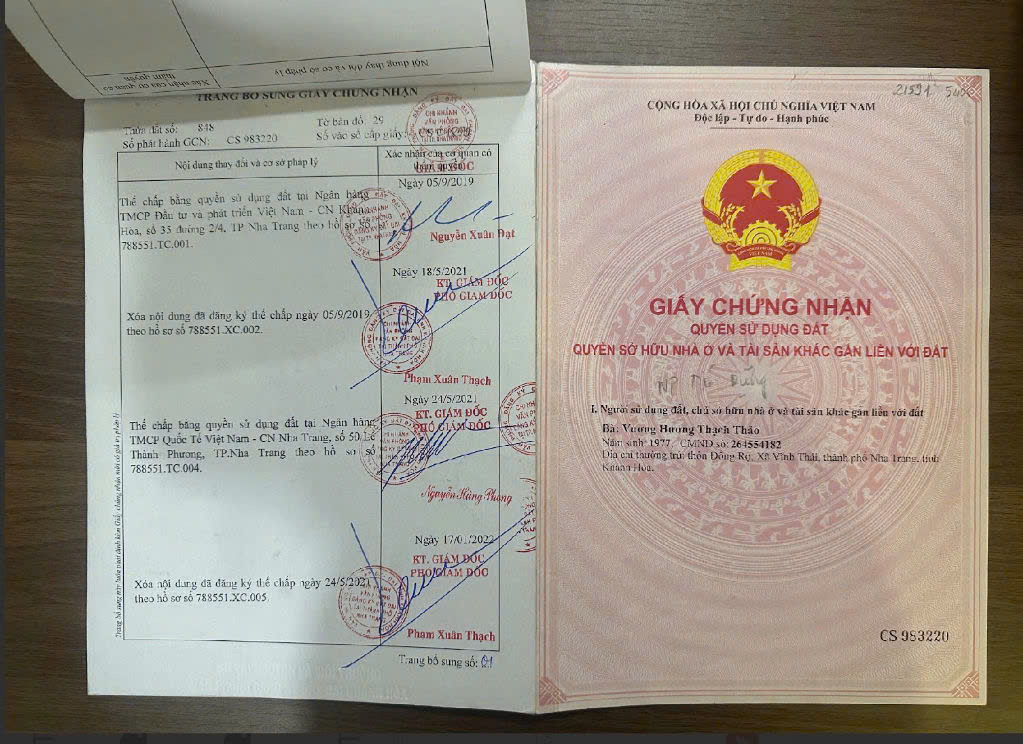 Nội dung thay đổi và cơ sở pháp lý
Xác nhận của cơ quan có
thẩm quyền
TRANG BỔ SUNG GIẤY CHỨNG NHẬN
Thửa đất số: 848
Tờ bản đồ: 29
Số phát hành GCN: CS 983220
Số vào sổ cấp giấy:
Nội dung thay đổi và cơ sở pháp lý
Xác nhận của cơ quan có
thẩm quyền
GIÁM ĐỐC
Ngày 05/9/2019
Thế chấp bằng quyền sử dụng đất tại Ngân hàng
TMCP Đầu tư và phát triển Việt Nam - CN Khánh
Hòa, số 35 đường 2/4, TP Nha Trang theo hồ sơ số
788551.TC.001.
Nguyễn Xuân Đạt
Ngày 18/5/2021
KT. GIÁM ĐỐC
PHÓ GIÁM ĐỐC
Xóa nội dung đã đăng ký thế chấp ngày 05/9/2019
theo hồ sơ số 788551.XC.002.
Phạm Xuân Thạch
Ngày 24/5/2021
KT. GIÁM ĐỐC
PHÓ GIÁM ĐỐC
Thế chấp bằng quyền sử dụng đất tại Ngân hàng
TMCP Quốc Tế Việt Nam - CN Nha Trang, số 50 Lê
Thành Phương, TP.Nha Trang theo hồ sơ số
788551.TC.004.
Nguyễn Hùng Phong
Ngày 17/01/2022
KT. GIÁM ĐỐC
PHÓ GIÁM ĐỐC
Xóa nội dung đã đăng ký thế chấp ngày 24/5/2021
theo hồ sơ số 788551.XC.005.
Phạm Xuân Thạch
Trang bổ sung số: 01
21591
CỘNG HÒA XÃ HỘI CHỦ NGHĨA VIỆT NAM
Độc lập - Tự do - Hạnh phúc
VIỆT NAM
GIẤY CHỨNG NHẬN
QUYỀN SỬ DỤNG ĐẤT
QUYỀN SỞ HỮU NHÀ Ở VÀ TÀI SẢN KHÁC GẮN LIỀN VỚI ĐẤT
I. Người sử dụng đất, chủ sở hữu nhà ở và tài sản khác gắn liền với đất
Bà: Vương Hương Thạch Thảo
Năm sinh: 1977, CMND số: 264554182
Địa chỉ thường trú: thôn Đồng Rọ, Xã Vĩnh Thái, thành phố Nha Trang, tỉnh
Khánh Hòa.
CS 983220